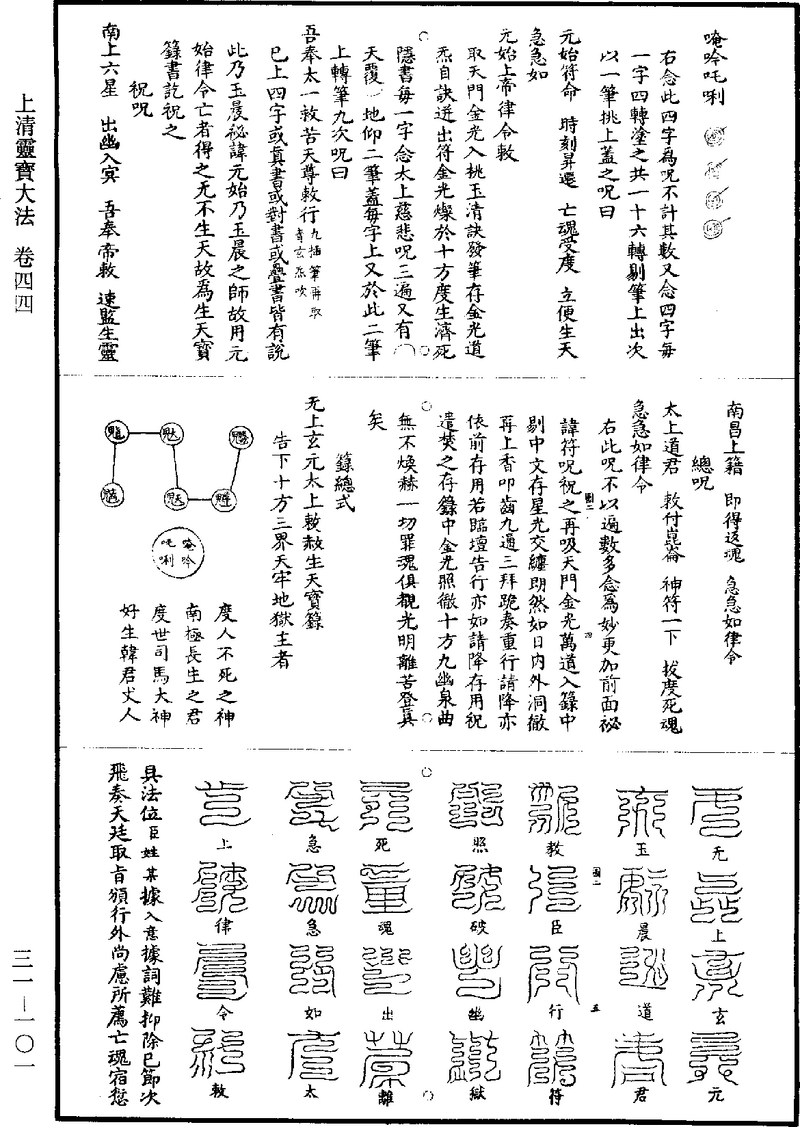 上清靈寶大法　卷四四
三一—一〇一
唵吟吒唎
右念此四字爲呪不計其數又念四字每
一字四轉塗之共一十六轉剔筆上出次
以一筆挑上蓋之呪曰
元始符命　時刻昇遷　亡魂受度　立便生天
急急如
元始上帝律令敕
取天門金光入挑玉清訣發筆存金光道
炁自訣迸出符金光燦於十方度生濟死
隱書每一字念太上慈悲呪三遍又有
天覆一地仰二筆蓋每字上又於此二筆
上轉筆九次呪曰
吾奉太一救苦天尊敕行
已上四字或眞書或對書或疊書皆有說
此乃玉晨祕諱元始乃玉晨之師故用元
始律令亡者得之无不生天故爲生天寶
籙書訖祝之
祝呪
南上六星　出幽入冥　吾奉帝敕　速監生靈
南昌上籍　即得返魂　急急如律令
總呪
太上道君　敕付崑崙　神符一下　拔度死魂
急急如律令
右此呪不以遍數多念爲妙更加前面祕
諱符呪祝之再吸天門金光萬道入籙中
剔中文存星光交纏朗然如日內外洞徹
再上香叩齒九通三拜跪奏重行請降亦
依前存用若臨壇告行亦如請降存用祝
遣焚之存籙中金光照徹十方九幽泉曲
無不煥赫一切罪魂俱覩光明離苦登眞
矣
籙總式
无上玄元太上敕赦生天寶籙
告下十方三界天牢地獄主者
唵吟
吒唎
度人不死之神
南極長生之君
度世司馬大神
好生韓君丈人
无上玄元
玉晨道君
敕臣行符
照破幽獄
死魂出離
急急如太
上律令敕
具法位臣姓某據入意據詞難抑除已節次
飛奏天廷取旨頒行外尚慮所薦亡魂宿愆